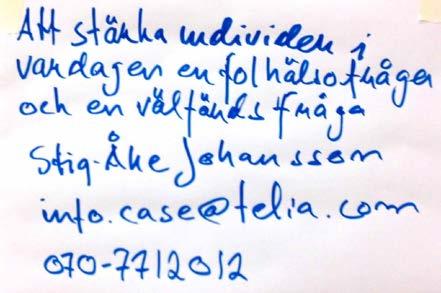 Att stärka individen i
vardagen en folhälsofråga
och en välfärdsfråga
Stig-Åke Johansson
info.case@telia.com
070-7712012